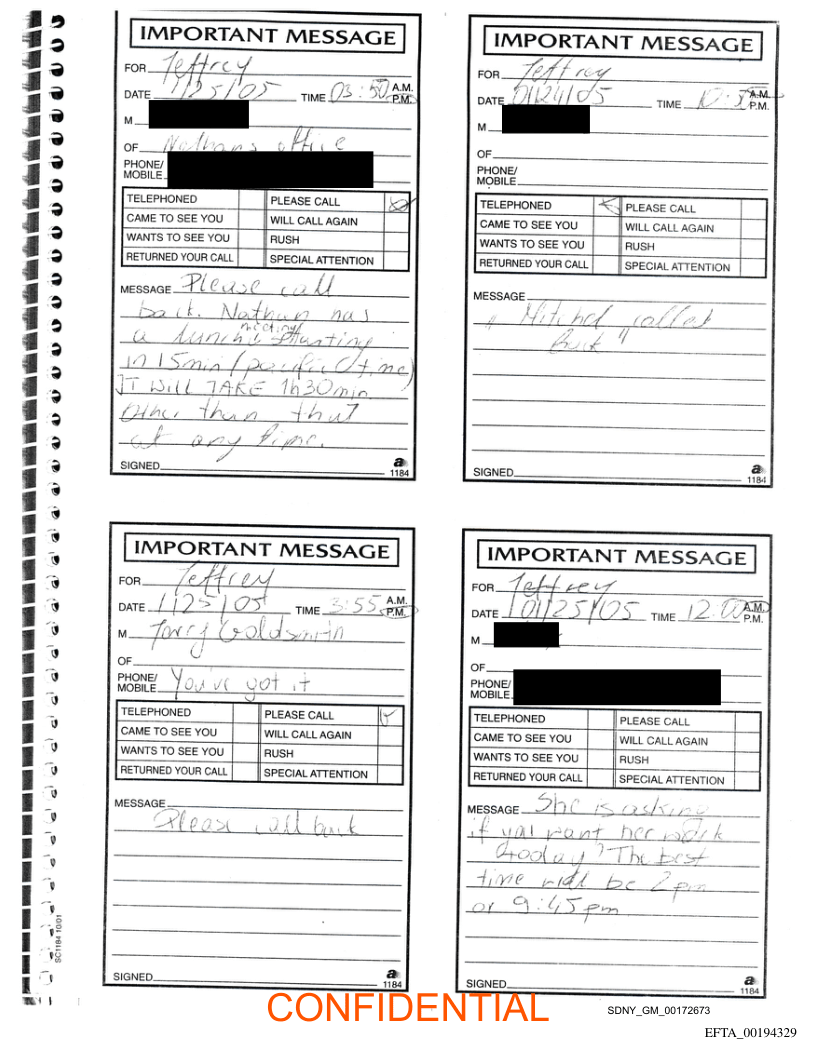 IMPORTANT MESSAGE
FOR Jeffrey
DATE 1/25/05 TIME 03:50 A.M. P.M.
M
OF Nathans office
PHONE/ MOBILE
TELEPHONED PLEASE CALL
CAME TO SEE YOU WILL CALL AGAIN
WANTS TO SEE YOU RUSH
RETURNED YOUR CALL SPECIAL ATTENTION
MESSAGE Please call
back. Nathan has
a lunch meeting starting
in 15min (pacific time)
IT WILL TAKE 1h30min
other than that
at any time.
SIGNED
a
1184
IMPORTANT MESSAGE
FOR Jeffrey
DATE 01/24/05 TIME A.M. P.M.
M
OF
PHONE/ MOBILE
TELEPHONED PLEASE CALL
CAME TO SEE YOU WILL CALL AGAIN
WANTS TO SEE YOU RUSH
RETURNED YOUR CALL SPECIAL ATTENTION
MESSAGE
"Mitchel called
Back"
SIGNED
a
1184
IMPORTANT MESSAGE
FOR Jeffrey
DATE 1/25/05 TIME 3:55 A.M. P.M.
M Goldsmith
OF
PHONE/ MOBILE You've got it
TELEPHONED PLEASE CALL
CAME TO SEE YOU WILL CALL AGAIN
WANTS TO SEE YOU RUSH
RETURNED YOUR CALL SPECIAL ATTENTION
MESSAGE
Please call back
SIGNED
a
1184
IMPORTANT MESSAGE
FOR Jeffrey
DATE 01/25/05 TIME 12:00 A.M. P.M.
M
OF
PHONE/ MOBILE
TELEPHONED PLEASE CALL
CAME TO SEE YOU WILL CALL AGAIN
WANTS TO SEE YOU RUSH
RETURNED YOUR CALL SPECIAL ATTENTION
MESSAGE She is asking
if you want her work
today? The best
time will be 2 pm
or 9:45 pm
SIGNED
a
1184
SC1184 10/01
CONFIDENTIAL
SDNY_GM_00172673
EFTA_00194329